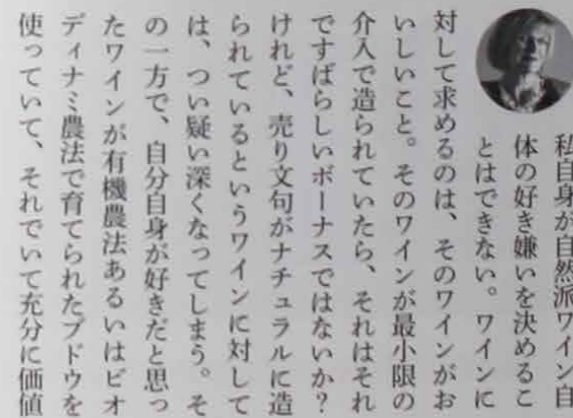 私自身が自然派ワイン自
体の好き嫌いを決めるこ
とはできない。ワインに
対して求めるのは、そのワインがお
いしいこと。そのワインが最小限の
介入で造られていたら、それはそれ
ですばらしいボーナスではないか?
けれど、売り文句がナチュラルに造
られているというワインに対して
は、つい疑い深くなってしまう。そ
の一方で、自分自身が好きだと思っ
たワインが有機農法あるいはビオ
ディナミ農法で育てられたブドウを
使っていて、それでいて充分に価値